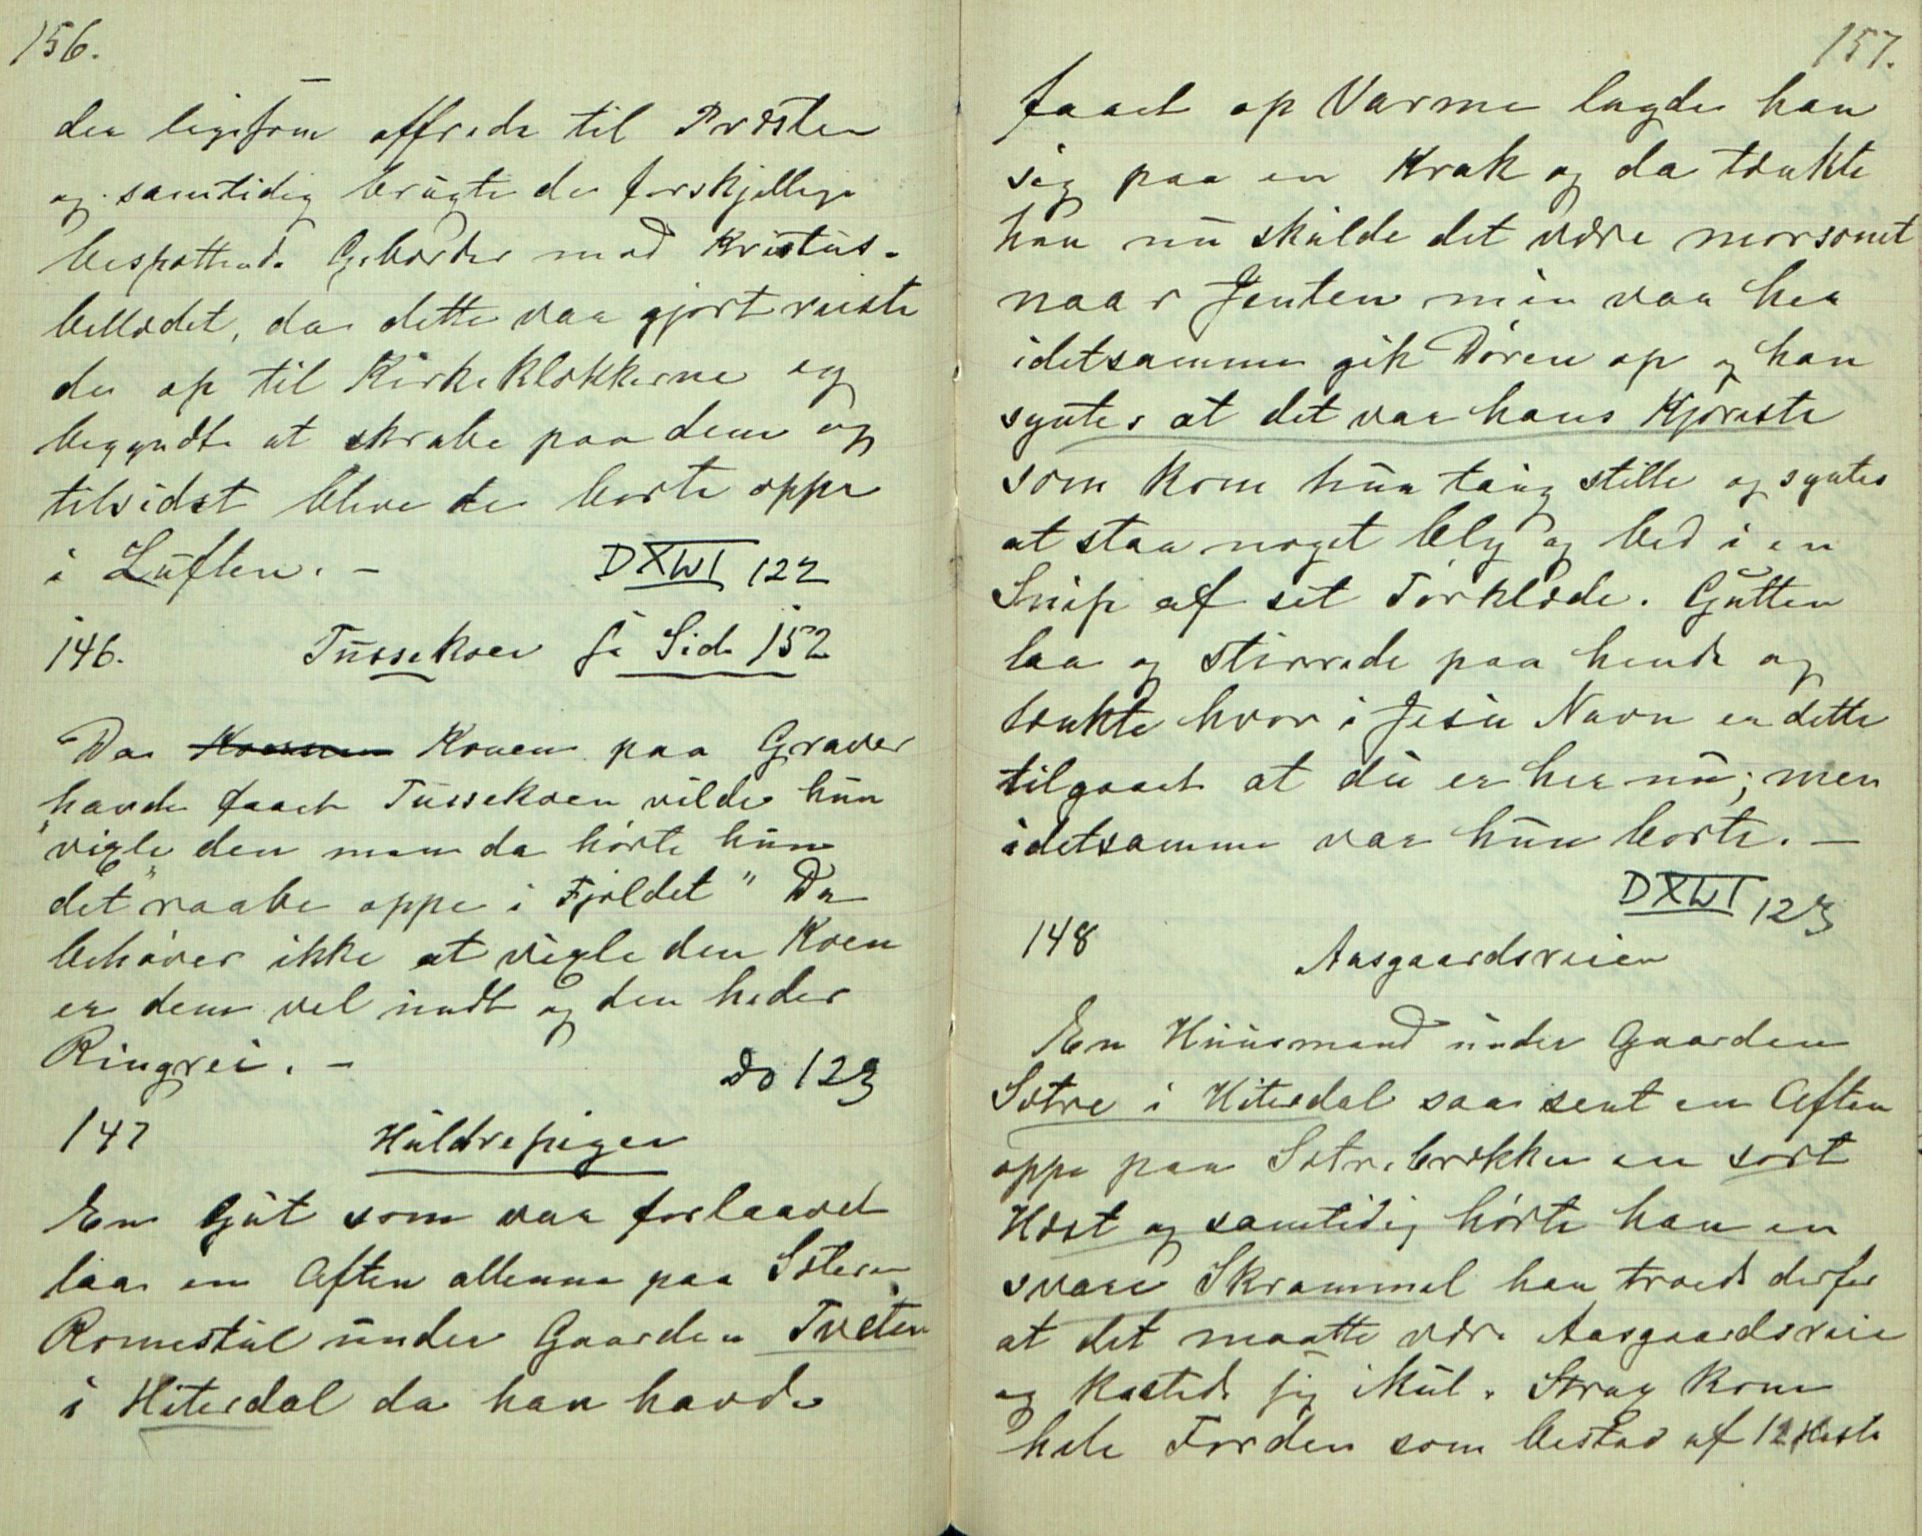 156.
der ligesom offrede til Præsten
og samtidig brugte de forskjellige
bespottende Gebærder mod Kristus-
billædet, da dette var gjort reiste
de op til Kirkeklokkerne og
begyndte at skrabe paa dem og
tilsidst bleve de borte oppe
i Luften. -
DXWI 122
146. Tussekoen Se Side 152
Da Konen paa Graver
havde faaet Tussekoen vilde hun
"vigle den men da hørte hun
det" raabe oppe i Fjeldet " Du
behøver ikke at vigle den Koen
er dem vel undt og den heder
Ringrei. -
Do 123
147 Huldrepigen
En Gut som var forlaavet
laa en Aften allenne paa Sæteren
Romestul under Gaarden Tveten
i Hiterdal da han havde
157.
faaet op Varme lagde han
sig paa en Krak og da tænkte
han nu skulde det være morsomt
naar Jenten min var her
idetsamme gik Døren op og han
syntes at det var hans Kjæreste
som kom hun taug stille og syntes
at staa noget bly og bed i en
Snip af sit Tørklæde. Gutten
laa og stirrede paa hende og
tænkte hvor i Jesu Navn er dette
tilgaaet at du er her nu; men
idetsamme var hun borte. -
DXWI 123
148
Aasgaardsreien
En Huusmand under Gaarden
Sætre i Hiterdal saa sent en Aften
oppe paa Sætrebrækken en sort
Hæst og samtidig hørte han en
svære Skrammel han troede derfor
at det maatte være Aasgaardsreie
og kastede sig ikul. Strax kom
hele Færden som bestod af 12 Heste